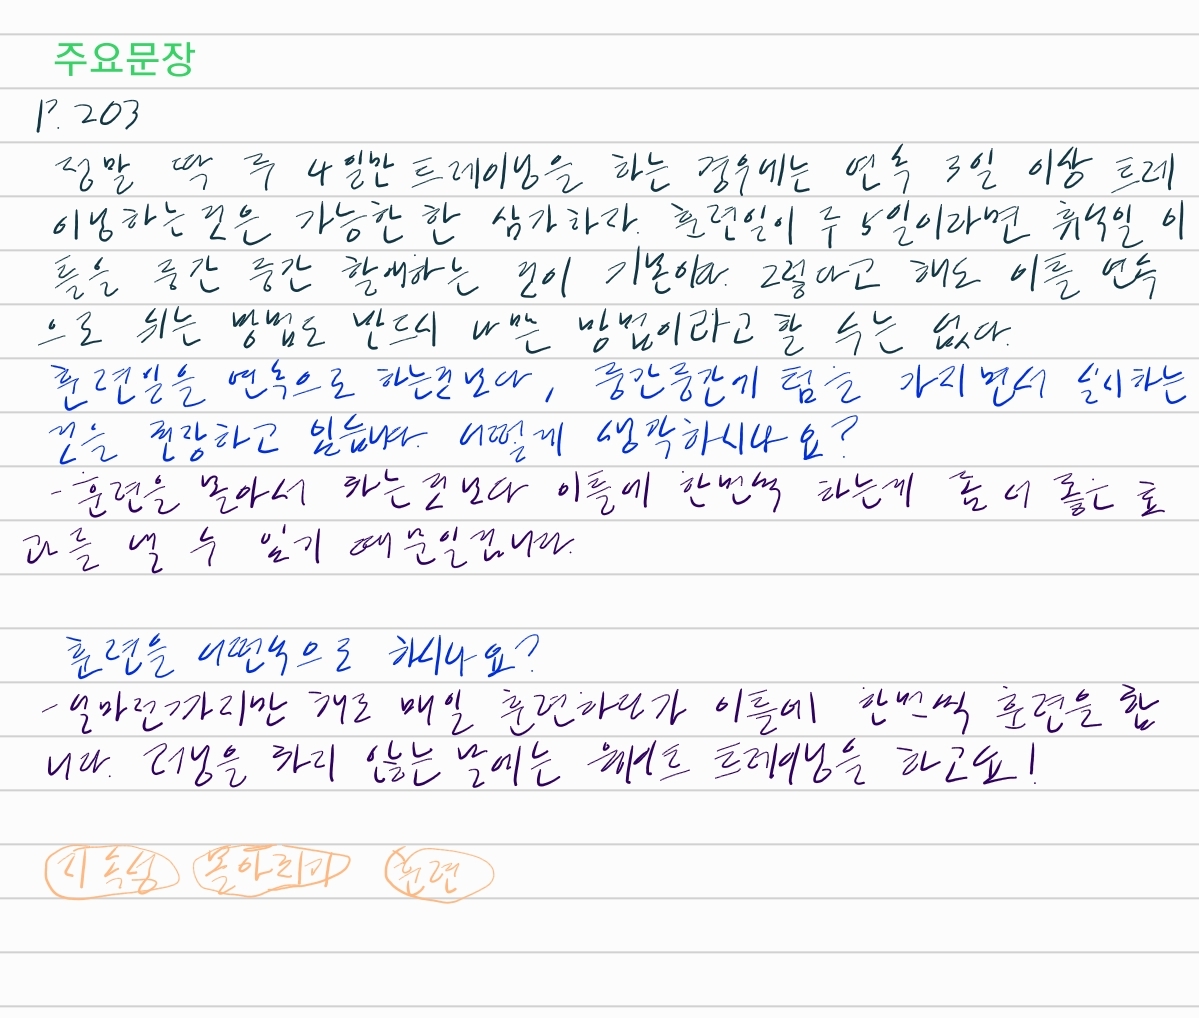 주요문장
P. 203
정말 딱 주 4일만 트레이닝을 하는 경우에는 연속 3일 이상 트레
이닝하는 것은 가능한 한 삼가하자. 훈련일이 주 5일이라면 휴식일 이
틀을 중간 중간 할애하는 것이 기본이다. 그렇다고 해도 이틀 연속
으로 쉬는 방법도 반드시 나쁜 방법이라고 할 수는 없다.
훈련일을 연속으로 하는것보다, 중간중간에 텀을 가지면서 실시하는
것을 권장하고 있습니다. 어떻게 생각하시나요?
- 훈련을 몰아서 하는것보다 이틀에 한번씩 하는게 좀 더 좋은 효
과를 낼 수 있기 때문일겁니다.
훈련을 어떤식으로 하시나요?
- 얼마전까지만 해도 매일 훈련하다가 이틀에 한번씩 훈련을 합
니다. 러닝을 하지 않는 날에는 웨이트 트레이닝을 하고요!
지속성 몰아치기 훈련